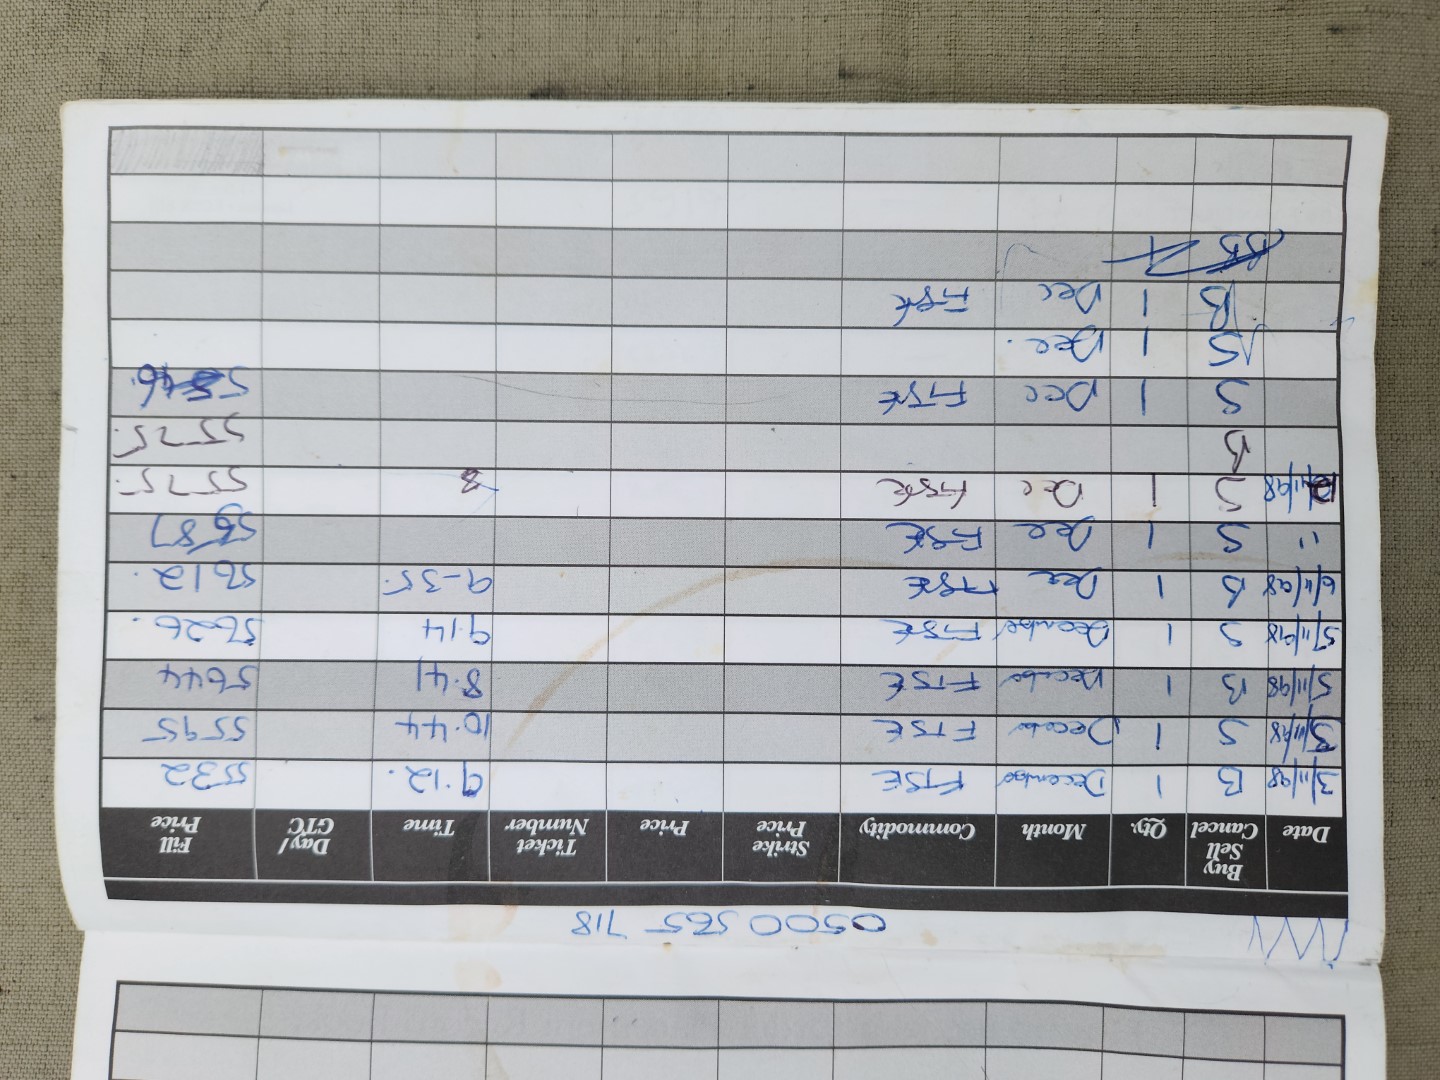 0500 565 718
Date Buy Sell Cancel Qty. Month Commodity Strike Price Price Ticket Number Time Day/ GTC Fill Price
3/11/98 B 1 December FTSE 9.12. 5532
3/11/98 S 1 December FTSE 10.44 5595
5/11/98 B 1 December FTSE 8.41 5644
5/11/98 S 1 December FTSE 9.14 5626.
6/11/98 B 1 Dec FTSE 9-35. 5612.
" S 1 Dec FTSE 5587
11/98 S 1 Dec FTSE 8 5575.
B 5525.
S 1 Dec FTSE 5546.
S 1 Dec.
B 1 Dec FTSE